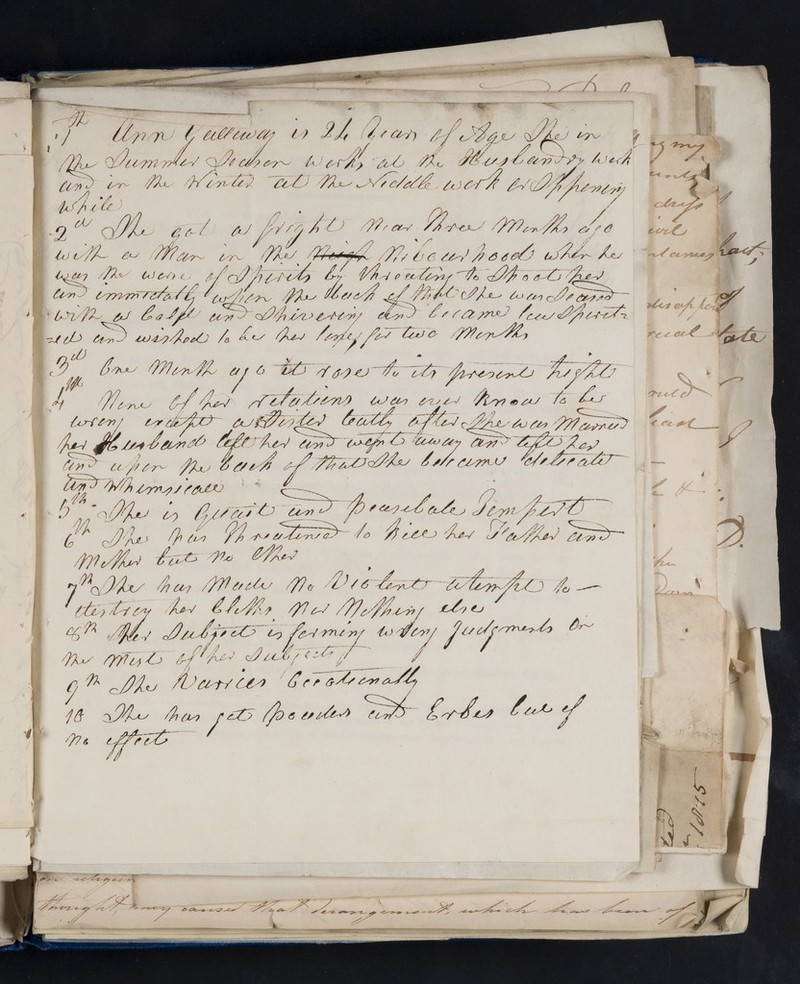 1st Ann Gallaway is 24 Years of Age She in
the Summer Season works at the Husbandry Work
and in the Winter at the Neddle work or
while
2d She got a fright near three Months ago
with a Man in the Neigh Nibourhood when he
was the worse of Spirits by threating to Shoot her
and immedatly upon the back of that She was Seased
with a Cold and Shivering and became low Spirit=
=ed and wished to be her for two Months
3d One Month ago it rose to its present hight
4th None of her relations was ever know to be
wrong except a Sister leatly after She was Married
her Husband left her and went away and left her
and upon the back of that She became delicate
and whimsicall
5th She is Quait and peasebale Tempert
6th She has threatined to kill her Father and
Mother but no Other
7th She has Made No Violent atempt to —
destroy her Cloths Nor Nothing else
8th Her Subject is forming wrong Judgments on
the Most of her Subjects
9th She Varries Occationally
10 She has got pouders and Erbes but of
no effect
ng my
dress
ivil
hart;
of
state
D.
1815
on religion
thought may caused that derangement, which has been of